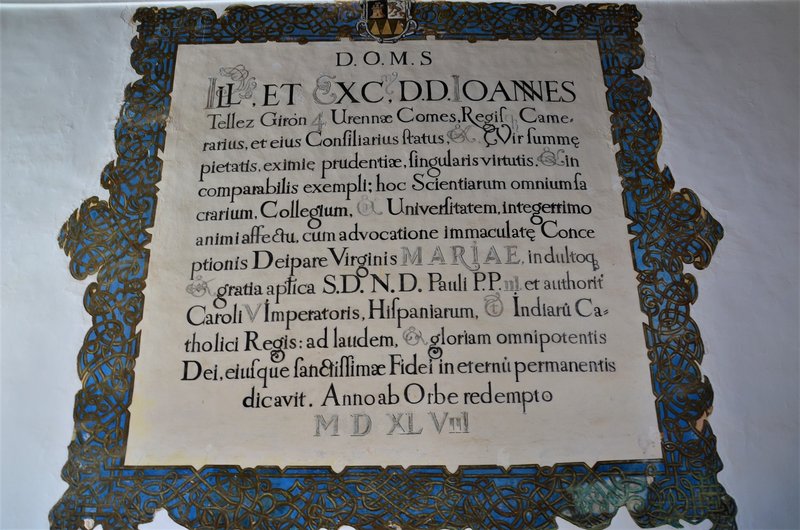 D.O.M.S
ILL, ET EXC, D.D. IOANNES
Tellez Girón 4 Urennæ Comes, Regis Came-
rarius, et eius Consiliarius status, & Vir summę
pietatis, eximię prudentiæ, singularis virtutis, & in
comparabilis exempli; hoc Scientiarum omnium sa
crarium, Collegium, & Universitatem, integerrimo
animi affectu, cum advocatione immaculatę Conce
ptionis Deipare Virginis MARIAE, indultoq
& gratia apłica S.D.N.D. Pauli P.P. III. et authorit
Caroli V Imperatoris, Hispaniarum, & Indiarū Ca-
tholici Regis: ad laudem, & gloriam omnipotentis
Dei, eiusque sanctissimæ Fidei in eternū permanentis
dicavit. Anno ab Orbe redempto
M D XL VIII